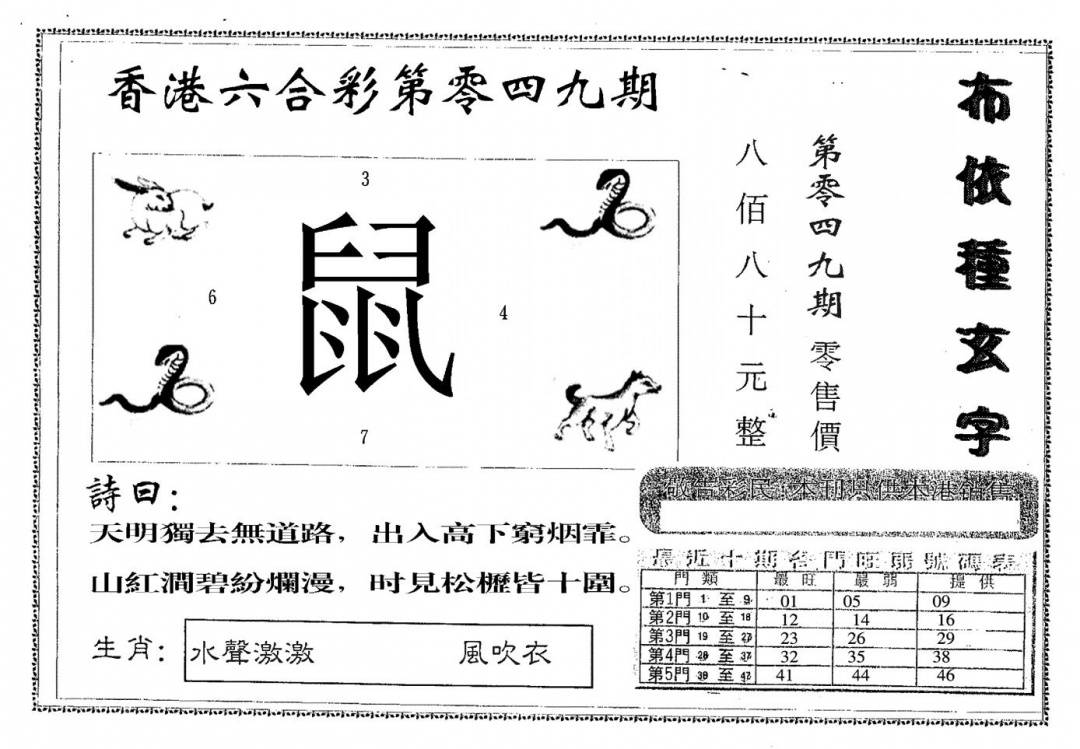 香港六合彩第零四九期
3
鼠
6
4
7
第零四九期零售價
八佰八十元整
布依種玄字
詩曰：
天明獨去無道路，出入高下窮烟霏。
山紅澗碧紛爛漫，时見松櫪皆十圍。
生肖：水聲激激 風吹衣
敬告彩民：本刊只供本港銷售
最近十期各門旺弱號碼表
門類 最旺 最弱 提供
第1門 1 至 9 01 05 09
第2門 10 至 18 12 14 16
第3門 19 至 27 23 26 29
第4門 28 至 37 32 35 38
第5門 38 至 47 41 44 46